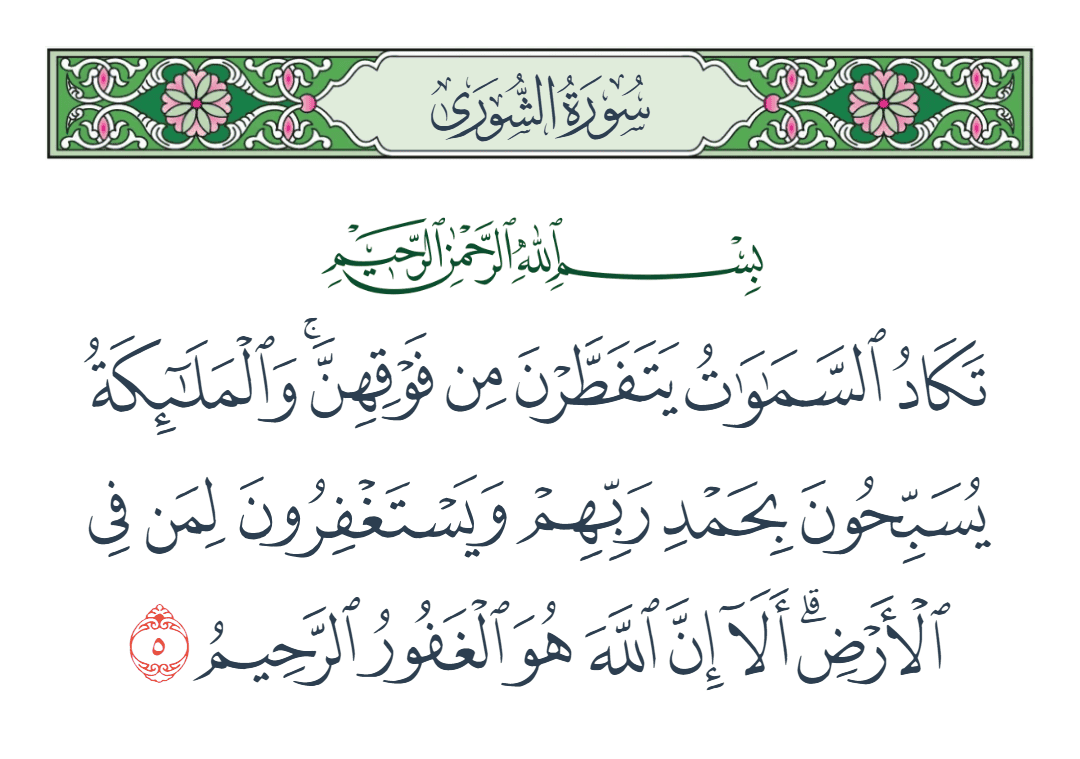 سُورَةُ الشُّورَىٰ
بِسْمِ ٱللَّهِ ٱلرَّحْمَٰنِ ٱلرَّحِيمِ
تَكَادُ ٱلسَّمَٰوَٰتُ يَتَفَطَّرْنَ مِن فَوْقِهِنَّ ۚ وَٱلْمَلَٰٓئِكَةُ
يُسَبِّحُونَ بِحَمْدِ رَبِّهِمْ وَيَسْتَغْفِرُونَ لِمَن فِى
ٱلْأَرْضِ ۗ أَلَآ إِنَّ ٱللَّهَ هُوَ ٱلْغَفُورُ ٱلرَّحِيمُ ٥